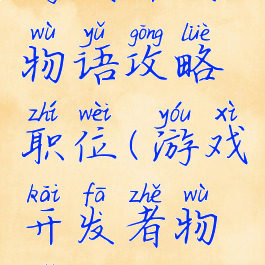 wù yǔ gōng lüè
物语攻略
zhí wèi yóu xì
职位(游戏
kāi fā zhě wù
开发者物